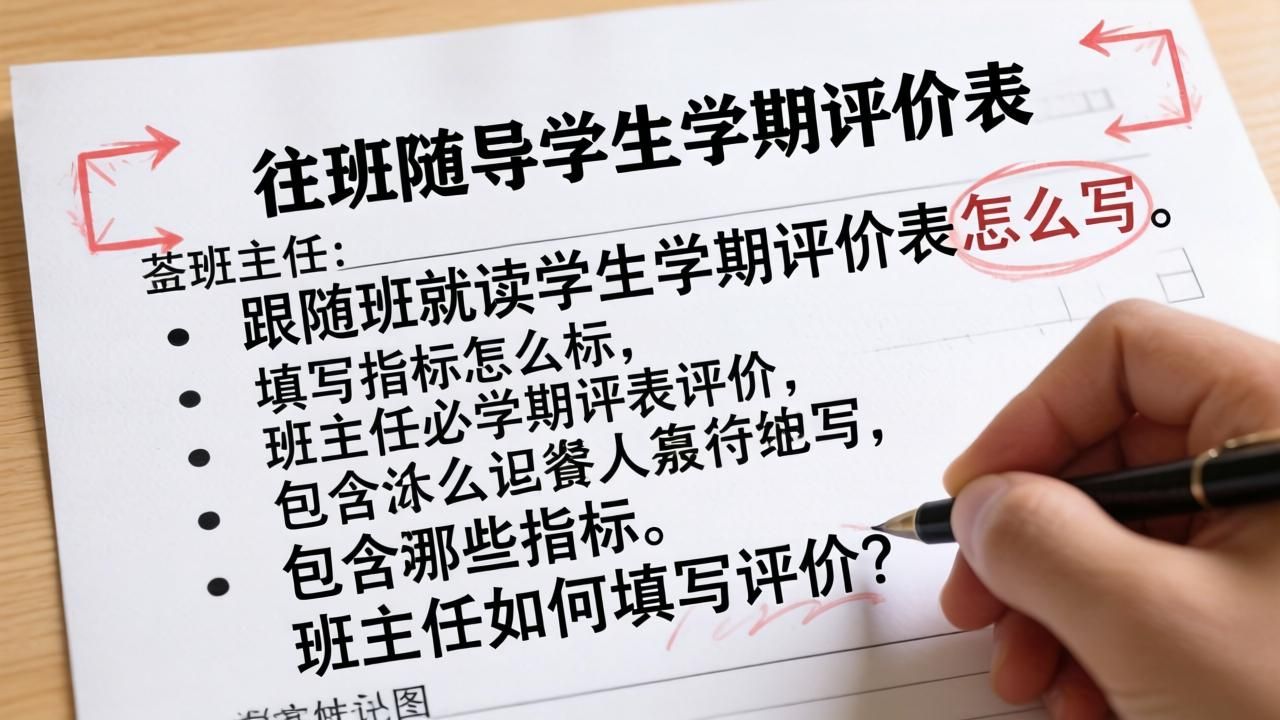 往班随导学生学期评价表
班主任：
跟随班就读学生学期评价表怎么写。
填写指标怎么标，
班主任必学期评表评价，
包含 么 人 写，
包含哪些指标。
班主任如何填写评价？
图